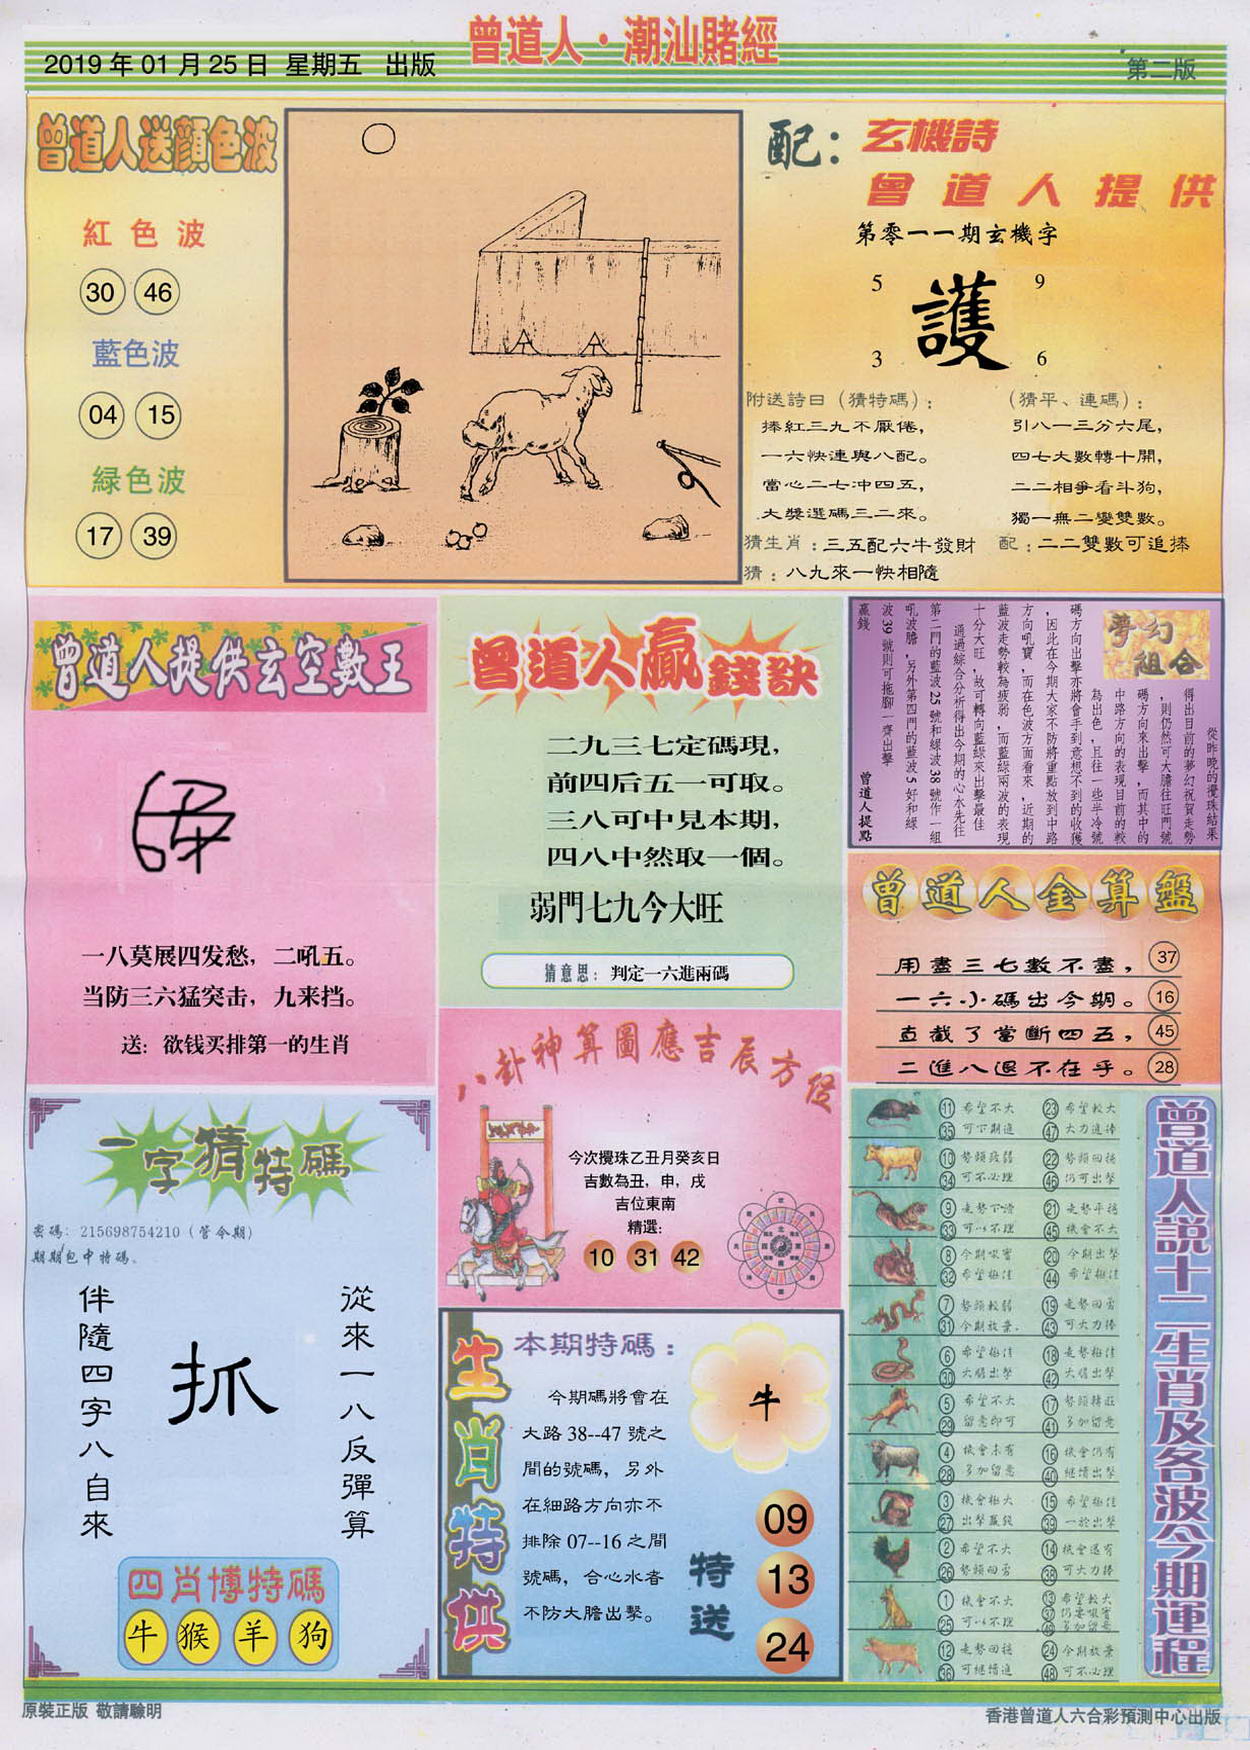 曾道人·潮汕賭經
2019年01月25日 星期五 出版
第二版
曾道人送顔色波
紅色波
30 46
藍色波
04 15
緑色波
17 39
配：玄機詩
曾道人提供
第零一一期玄機字
5 9
護
3 6
附送詩曰（猜特碼）：
捧紅三九不厭倦，
一六快連與八配。
當心二七冲四五，
大獎選碼三二來。
（猜平、連碼）：
引八一三分六尾，
四七大數轉十開，
二二相爭看斗狗，
獨一無二變雙數。
猜生肖：三五配六牛發財
配：二二雙數可追捧
猜：八九來一快相隨
曾道人提供玄空數王
一八莫展四发愁，二吼五。
当防三六猛突击，九来挡。
送：欲钱买排第一的生肖
曾道人贏錢訣
二九三七定碼現，
前四后五一可取。
三八可中見本期，
四八中然取一個。
弱門七九今大旺
猜意思：判定一六進兩碼
夢幻組合
從昨晚的攪珠結果
得出目前的夢幻祝賀走勢
，則仍然可大膽往旺門號
碼方向來出擊，而其中的
中路方向的表現目前的較
為出色，且往一些半冷號
碼方向出擊亦將會手到意想不到的收獲
，因此在今期大家不防將重點放到中路
方向吼寶，而在色波方面看來，近期的
藍波走勢較為疲弱，而藍綠兩波的表現
十分大旺，故可轉向藍綠來出擊最佳
通過綜合分析得出今期的心水先往
第二門的藍波25號和綠波38號作一組
吼波膽，另外第四門的藍波5好和綠
波39號則可拖腳一齊出擊
贏錢
曾道人提點
曾道人金算盤
用盡三七數不盡，37
一六小碼出今期。16
直截了當斷四五，45
二進八退不在乎。28
八卦神算圖應吉辰方位
今次攪珠乙丑月癸亥日
吉數為丑，申，戌
吉位東南
精選：
10 31 42
一字猜特碼
密碼：215698754210（管令期）
期期包中特碼。
從來一八反彈算
抓
伴隨四字八自來
四肖博特碼
牛 猴 羊 狗
生肖特供
本期特碼：
今期碼將會在
大路38--47號之
間的號碼，另外
在細路方向亦不
排除07--16之間
號碼，合心水者
不防大膽出擊。
牛
特送
09
13
24
曾道人説十二生肖及各波今期運程
11 希望不大 23 希望較大
35 可下期進 47 大力進捧
10 勢頭疲弱 22 勢頭回穩
34 可不必理 46 仍可出擊
9 走勢下滑 21 走勢平穩
33 可以不理 45 機會不大
8 今期吸寶 20 今期出擊
32 希望極佳 44 希望極佳
7 勢頭較弱 19 走勢回勇
31 今期放棄 43 可大力捧
6 希望極佳 18 走勢極佳
30 大膽出擊 42 大膽出擊
5 希望不大 17 勢頭轉旺
29 留意即可 41 多加留意
4 機會未有 16 機會仍有
28 多加留意 40 繼續出擊
3 機會極大 15 希望極佳
27 出擊贏錢 39 一於出擊
2 希望不大 14 機會還有
26 勢頭回勇 38 可大力捧
1 機會不大 13 希望較大
25 可以不理 37 仍要吸寶
49 多加留意
12 走勢回穩 24 今期放棄
36 可繼續進 48 可不必理
原裝正版 敬請驗明
香港曾道人六合彩預測中心出版